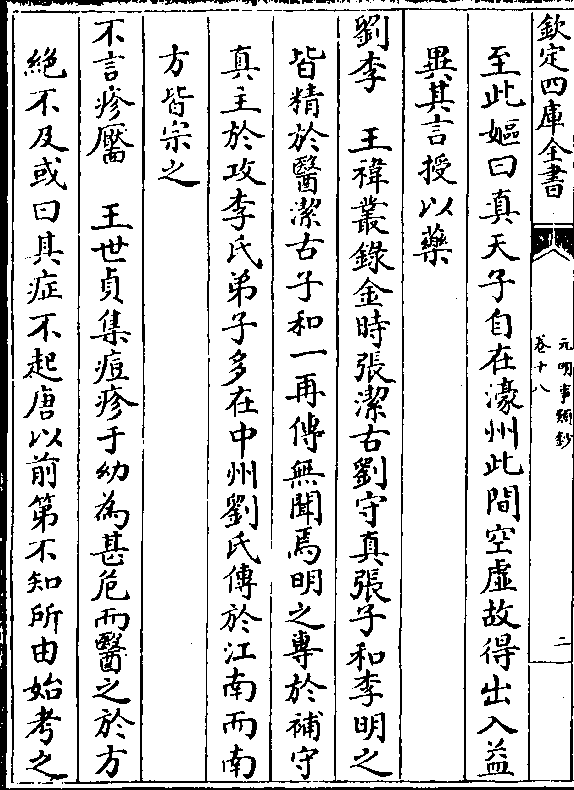 欽定四庫全書
元明事類鈔
卷十八
二
至此嫗曰真天子自在濠州此間空虛故得出入益
異其言授以藥
劉李　王禕叢錄金時張潔古劉守真張子和李明之
皆精於醫潔古子和一再傳無聞焉明之專於補守
真主於攻李氏弟子多在中州劉氏傳於江南而南
方皆宗之
不言疹靨　王世貞集痘疹于幼為甚危而醫之於方
絕不及或曰其症不起唐以前第不知所由始考之